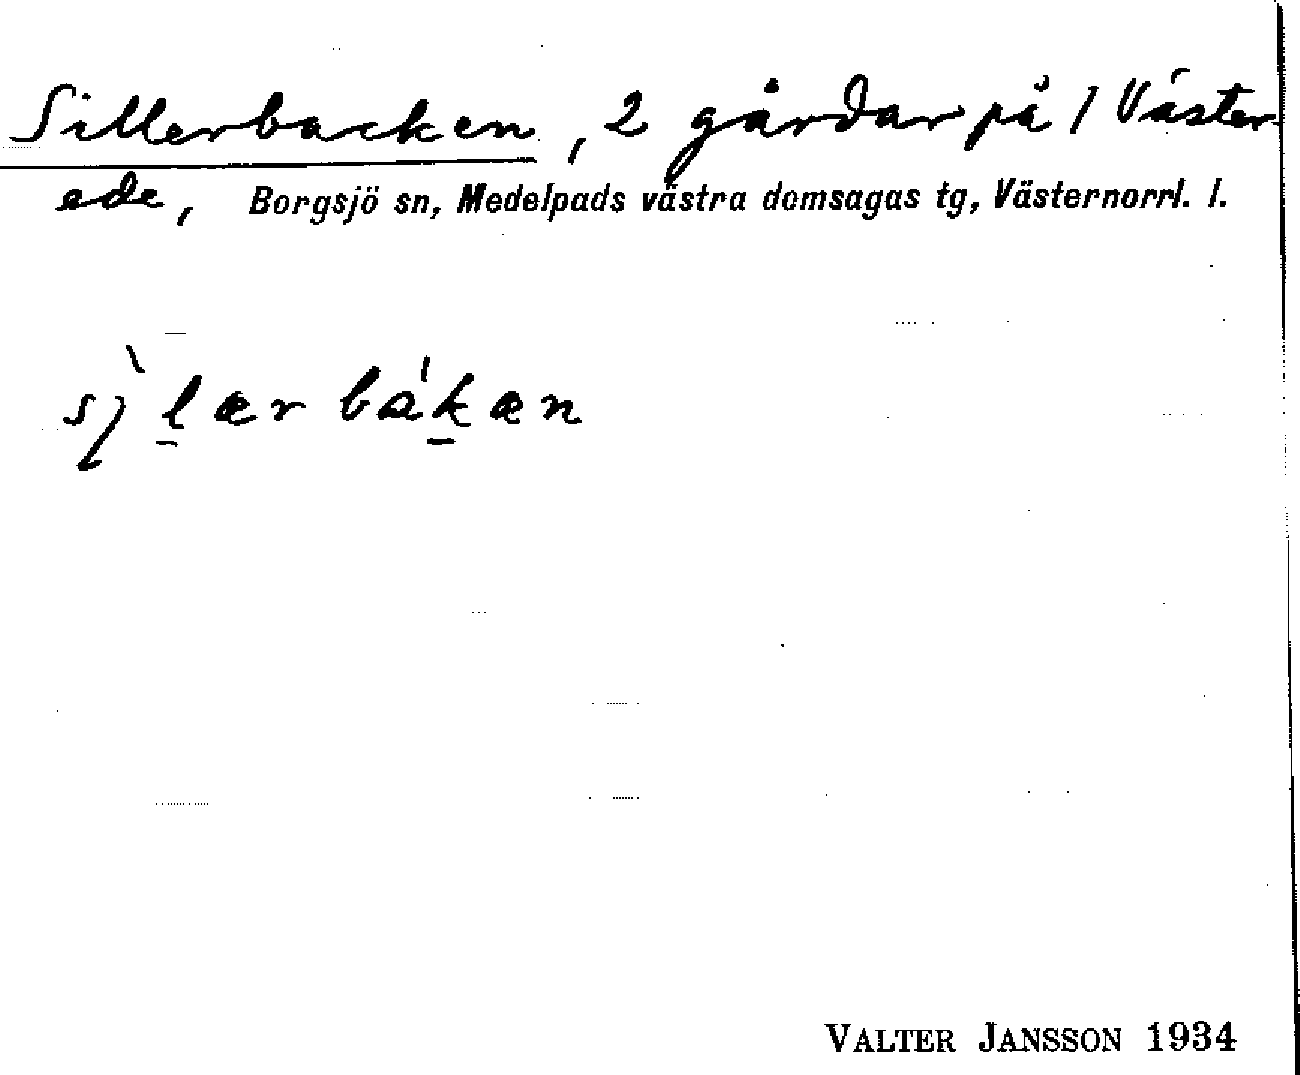 Sillerbacken, 2 gårdar på 1 Väster-
ede, Borgsjö sn, Medelpads västra domsagas tg, Västernorrl. l.
sı̡̀l̠ær bák̠æn
VALTER JANSSON 1934